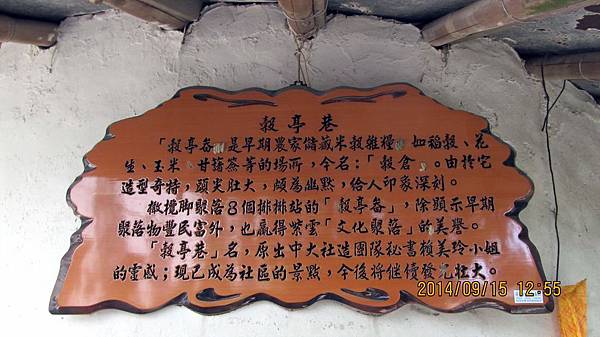 穀亭巷
「穀亭畚」是早期農家儲藏米穀雜糧,如稻穀、花
生、玉米、甘藷簽等的場所,今名:「穀倉」。由於它
造型奇特,頭尖肚大,頗為幽默,給人印象深刻。
橄欖腳聚落8個排排站的「穀亭畚」,除顯示早期
聚落物豐民富外,也贏得紫雲「文化聚落」的美譽。
「穀亭巷」名,原出中大社造團隊秘書賴美玲小姐
的靈感;現已成為社區的景點,今後將繼續發光壯大。
2014/09/15 12:55